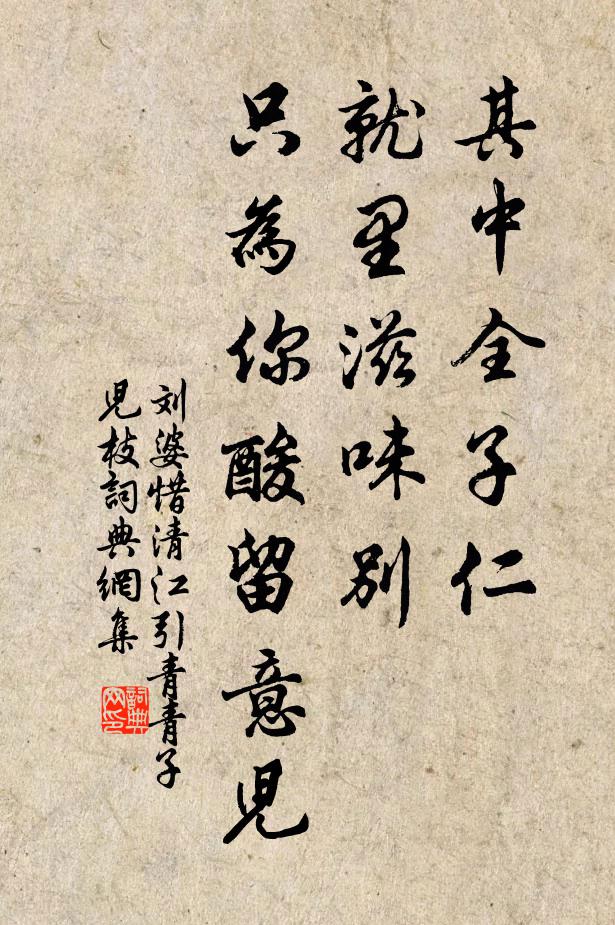 其中全子仁
就里滋味别
只為你酸留意兒
刘婆惜清江引青青子
兒枝詞典網集
詞典網印